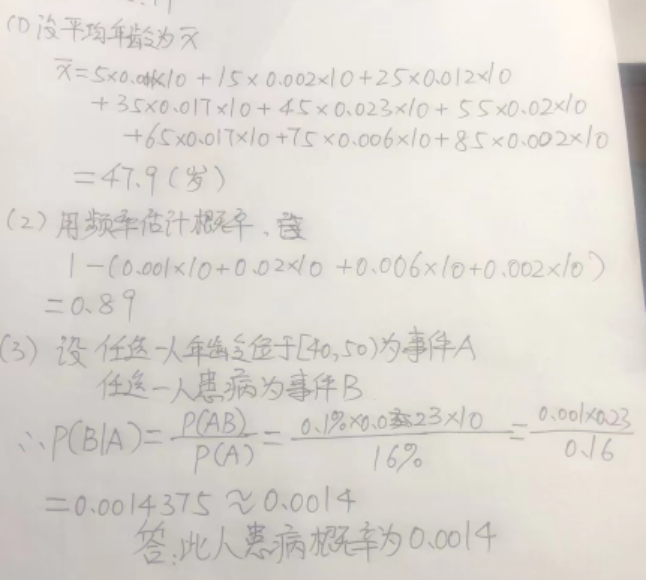 (1) 设平均年龄为x̄
x̄=5×0.001×10+15×0.002×10+25×0.012×10
+35×0.017×10+45×0.023×10+55×0.02×10
+65×0.017×10+75×0.006×10+85×0.002×10
=47.9(岁)
(2) 用频率估计概率、
1-(0.001×10+0.02×10+0.006×10+0.002×10)
=0.89
(3) 设任选一人年龄位于[40,50)为事件A
任选一人患病为事件B
∴P(B|A)=P(AB)/P(A)=0.1%×0.023×10/16%=0.001×0.23/0.16
=0.0014375≈0.0014
答:此人患病概率为0.0014